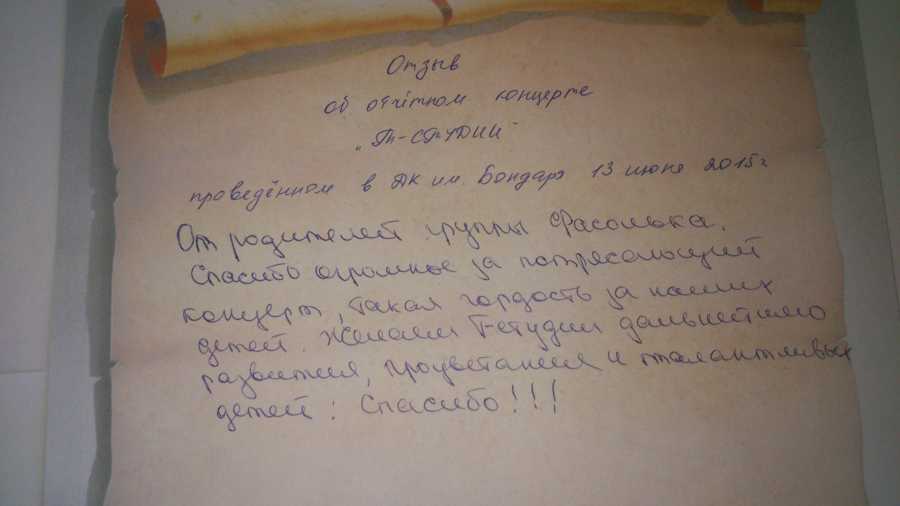 Отзыв
об отчётном концерте
„Т-СТУДИИ"
проведённом в ДК им. Бондаря 13 июне 2015г
От родителей группы Фасолька.
Спасибо огромное за потрясающий
концерт, такая гордость за наших
детей. Желаем Т-студии дальнейшего
развития, процветания и талантливых
детей! Спасибо!!!